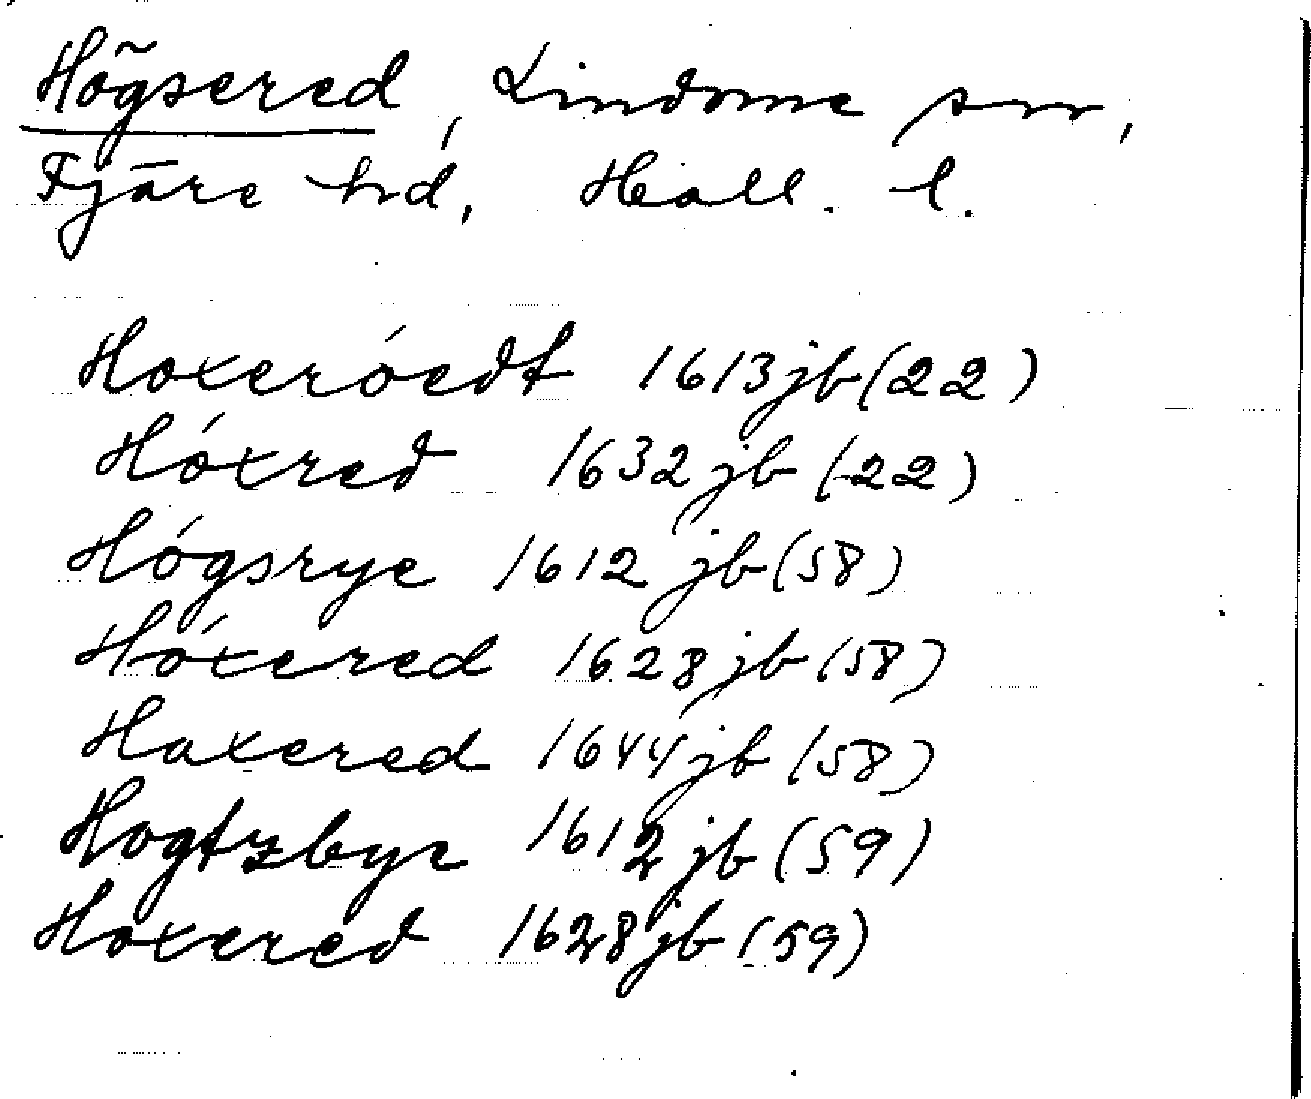 Högsered, Lindome sn,
Fjäre hd, Hall. l.
Hoxeróedt 1613 jb (22)
Hóxred 1632 jb (22)
Hógsrye 1612 jb (58)
Hóxered 1628 jb (58)
Haxered 1644 jb (58)
Hogtzbye 1612 jb (59)
Hoxered 1628 jb (59)